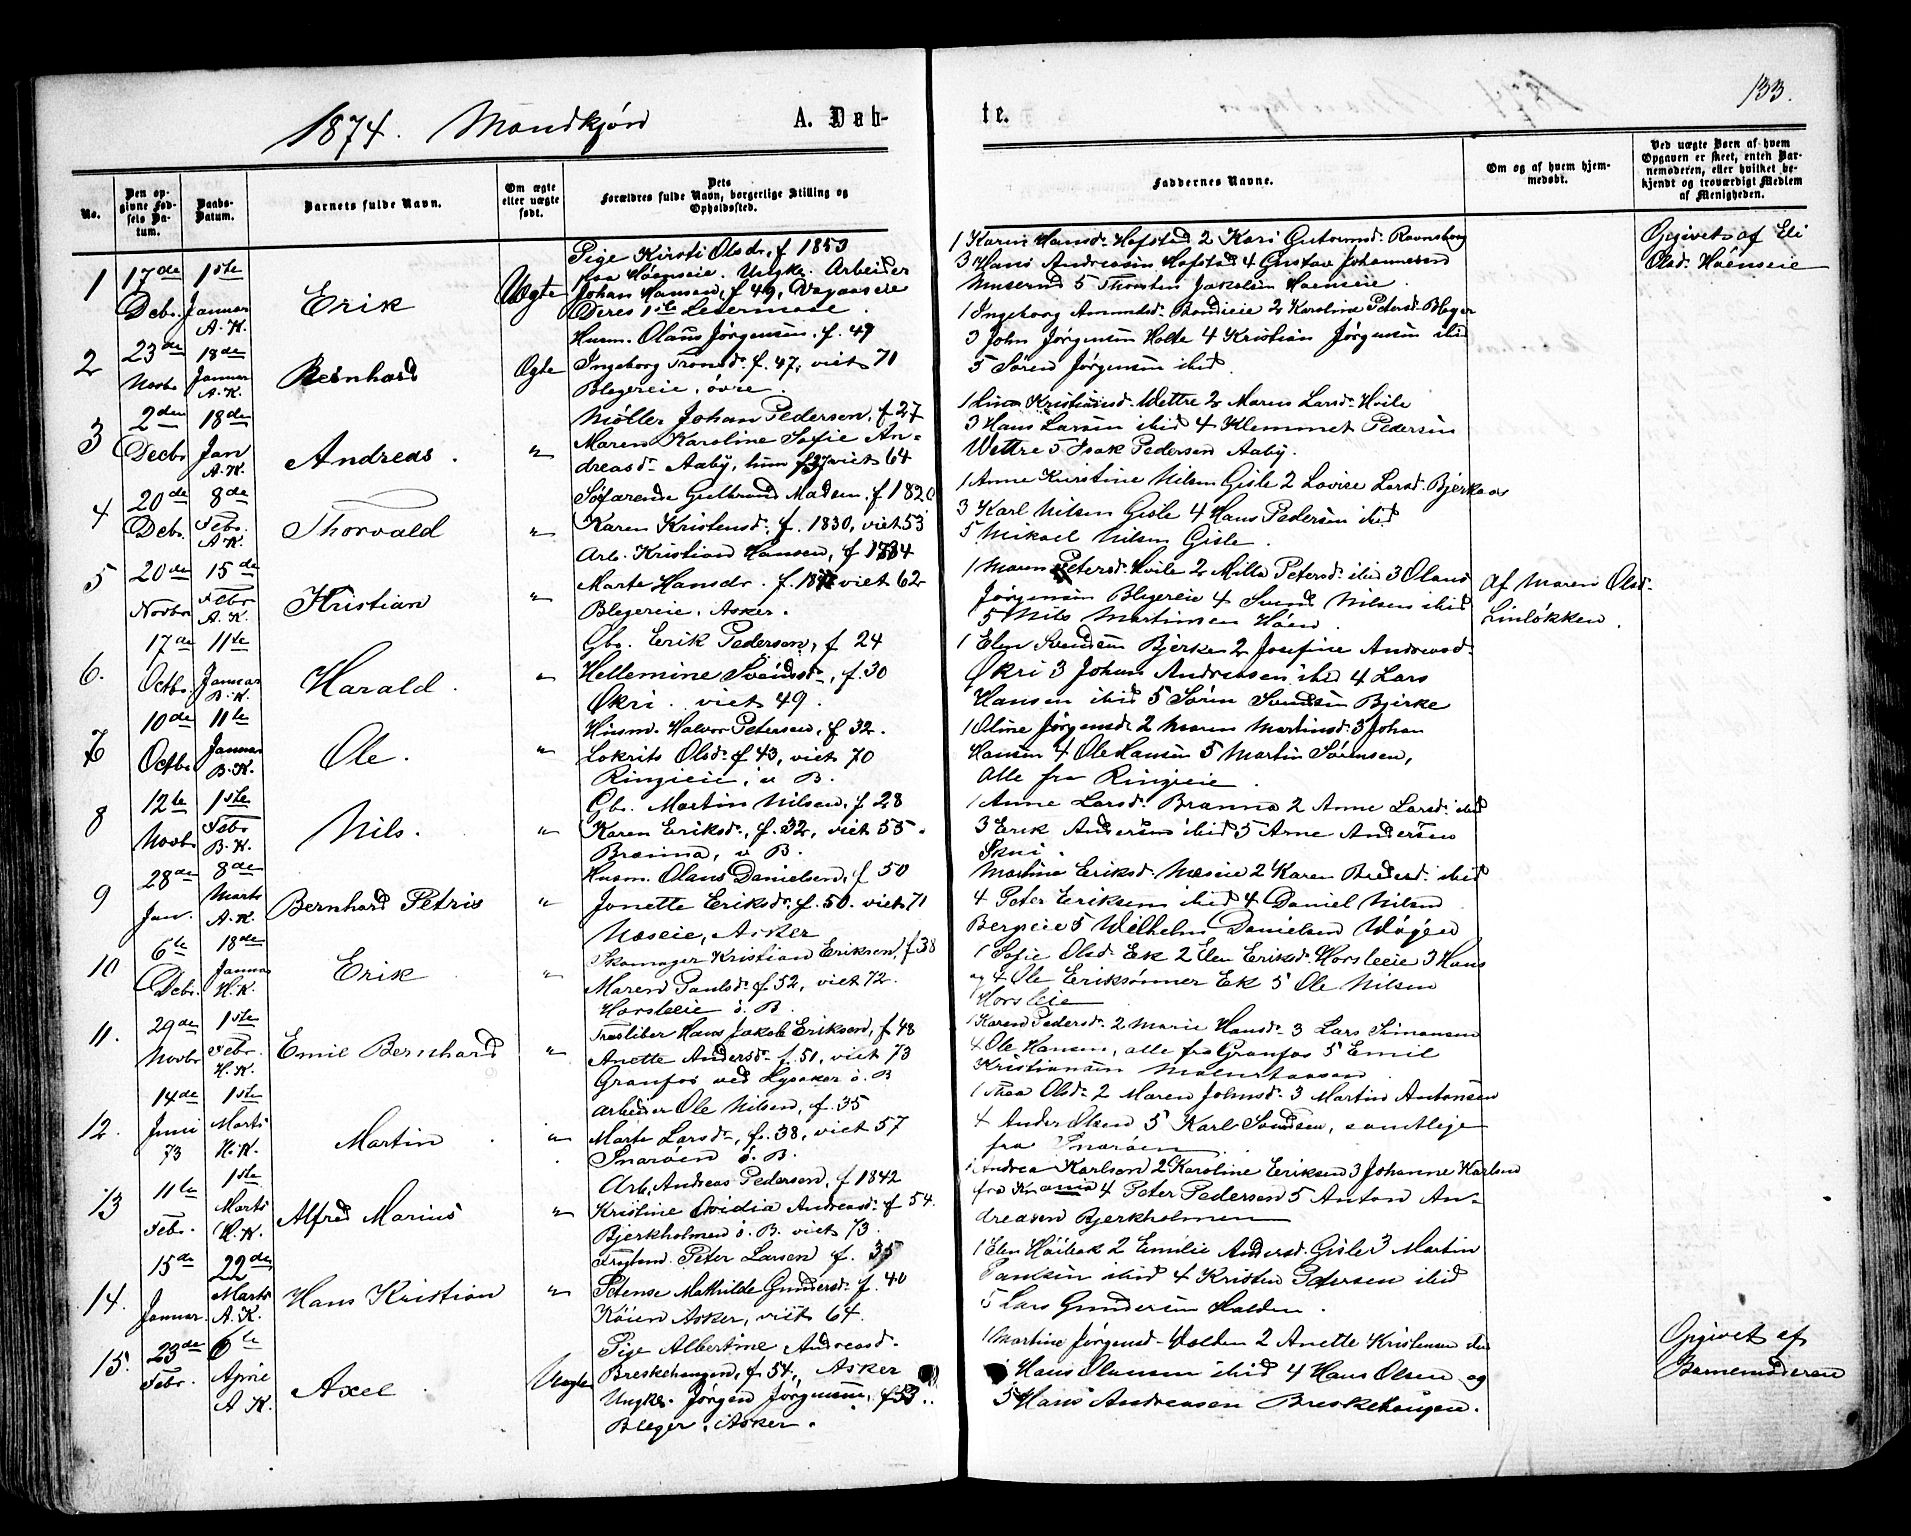 133.
1874. Mandkjøn A. Døb- te.
No.
Den op-
givne Fød-
sels Da-
tum.
Daabs-
Datum.
Barnets fulde Navn.
Om ægte
eller uægte
født.
Dets
Forældres fulde Navn, borgerlige Stilling og
Opholdssted.
Faddernes Navne.
Om og af hvem hjem-
medøbt.
Ved uægte Børn af hvem
Opgaven er skeet, enten Bar-
nemoderen, eller hvilket be-
kjendt og troværdigt Medlem
af Menigheden.
1
17de
Debr.
1ste
Januar
A. K.
Erik
Uægte
Pige Kirsti Olsdr. f 1853
paa Høenseie. Ungkr. Arbeider
Johan Hansen, f 49,
Deres 1ste Leiermaal.
1 Karin Hansdr. Hofstad 2 Kari Gutormsdr. Ravnsborg
3 Hans Andreasen Hofstad 4 Gustav Johannesen
5 Thorsten Jakobsen Høenseie.
Opgivet af Eli
Olsd. Høenseie
2
23de
Novbr
18de
Januar
A. K.
Bernhard
Ægte
Husm. Olaus Jørgensen. f. 49
Ingeborg Tronsdr. f. 47, viet 71
Blegereie, øvre.
1 Ingeborg Amundsdr. 2 Karoline Petersdr. Bleger
3 John Jørgensen Holte 4 Kristian Jørgensen ibid
5 Søren Jørgensen ibid.
3
2den
Decbr
18de
Jan
A. K.
Andreas.
"
Møller Johan Pedersen, f 27
Maren Karoline Sofie An-
dreasdr. Aaby, hun f 37 viet 64
1 Lina Kristiansdr. Wettre 2 Maren Larsdr. Hvile
3 Hans Larsen ibid 4 Klemmet Pedersen
Wettre 5 Isak Pedersen Aaby.
4
20de
Debr.
8de
Febr.
A K.
Thorvald
"
Søfarende Gulbrand Madsen. f 1820
Karen Kristensdr. f. 1830, viet 53
1 Anne Kristine Nilsen Gisle 2 Lovise Larsdr. Bjerkaas
3 Karl Nilsen Gisle 4 Hans Pedersen ibid
5 Mikael Nilsen Gisle.
5
20de
Novbr
15de
Febr
A. K.
Kristian
"
Arb. Kristian Hansen, f 1834
Marte Hansdr. f. viet 62
Blegereie. Asker.
1 Maren Petersdr. Hvile 2 Milla Petersdr. ibid 3 Olaus
Jørgensen Blegereie 4 Svend Nilsen ibid
5 Nils Martinsen Høen.
Af Maren Olsd.
Linløkken.
6.
17de
Octbr.
11te
Januar
B. K.
Harald.
"
Gbr. Erik Pedersen, f 24
Hellemine Svendsdr, f. 30
Økri. viet 49.
1 Elen Svendsen Bjerke 2 Josefine Andreasd.
Økri 3 Johan Andreassen ibid 4 Lars
Hansen ibid 5 Søren Svendsen Bjerke
7
10de
Octbr
11te
Januar
B. K.
Ole.
"
Husm. Halvor Petersen, f 32.
Lokrits Olsdr. f 43, viet 70
Ringieie, v B.
1 Oline Jørgensdr. 2 Maren Martinsdr. 3 Johan
Hansen 4 Ole Hansen 5 Martin Sørensen,
Alle fra Ringieie.
8
12te
Novbr
1ste
Febr
B. K.
Nils.
"
Gbr. Martin Nilsen, f 28
Karen Eriksdr., f. 32, viet 55.
Brænna, v B.
1 Anne Larsdr. Brænna 2 Anne Larsdr. ibid
3 Erik Andersen ibid 5 Arne Andersen
Skui.
9
28de
Jan.
8de
Marts
A. K.
Bernhard Petris
"
Husm. Olaus Danielsen, f 50
Jonette Eriksdr. f. 50. viet 71
Næseie, Asker
Martine Eriksdr. Næseie 2 Karen ibid
4 Peter Eriksen ibid 4 Daniel Nilsen
Bergseie 5 Wilhelm Danielsen Wøyen
10
6te
Debr.
18de
Januar
H. K.
Erik
"
Skomager Kristian Eriksen, f 38
Maren Paulsdr. f 52, viet 72.
Horsleeie ø. B.
1 Sofie Olsd. Ek 2 Elen Eriksdr. Horsleeie 3 Hans
og 4 Ole Erikssønner Ek 5 Ole Nilsen
Horsleie
11.
29de
Novbr
1ste
Febr.
H. K.
Emil Bernhard
"
Træsliber Hans Jakob Eriksen, f 48
Anette Andersdr. f. 51, viet 73
Granfos ved Lysaker ø. B
1 Karen Pedersdr. 2 Marie Hansdr. 3 Lars Simonsen
4 Ole Hansen, alle fra Granfos 5 Emil
Kristiansen
12.
14de
Juni
73
1ste
Marts
H. K.
Martin
"
Arbeider Ole Nilsen, f. 35
Marte Larsdr, f. 38, viet 57
Snarøen ø. B.
1 Thea Olsdr. 2 Maren Johnsdr. 3 Martin Antonsen
4 Anders Olsen 5 Karl Svendsen, samtlige
fra Snarøen
13
11te
Febr.
1ste
Marts
H. K.
Alfred Marius
"
Arb. Andreas Pedersen, f 1842
Kristine Ovidia Andreasdr. f 54.
Bjerkholmen ø. B. viet 73.
1 Andrea Karlsen 2 Karoline Eriksen 3 Johanne Karlsen
fra Kr.ania 4 Peter Pedersen 5 Anton An-
dreasen Bjerkholmen
14.
15de
Januar.
22de
Marts
A. K.
Hans Kristian
"
Peter Larsen f. 35
Petense Mathilde Gundersdr. f. 40
Køien Asker, viet 64.
1 Elen Høibak 2 Emilie Andersdr. Gisle 3 Martin
Paulsen ibid 4 Kristen Petersen ibid
5 Lars Gundersen Halden.
15.
23de
Febr.
6te
April
A K.
Axel.
Uægte
Pige Albertine Andreasd.
Breskehaugen, f. 54., Asker
Ungkr. Jørgen Jørgensen, f 53..
Bleger. Asker.
1 Martine Jørgensdr. Halden 2 Anette Kristensen ibid
Hans Olausen ibid 4 Hans Olsen og
5 Hans Andreasen Breskehaugen.
Opgivet af
Barnemoderen